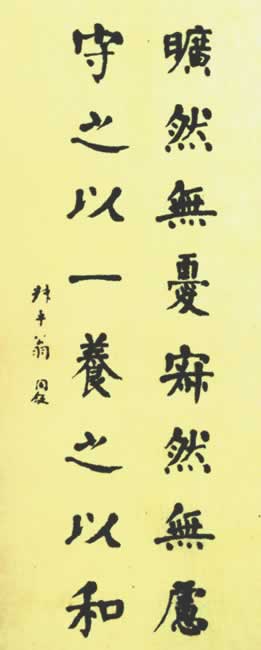 曠然無憂寂然無慮
守之以一養之以和
叔平翁同龢